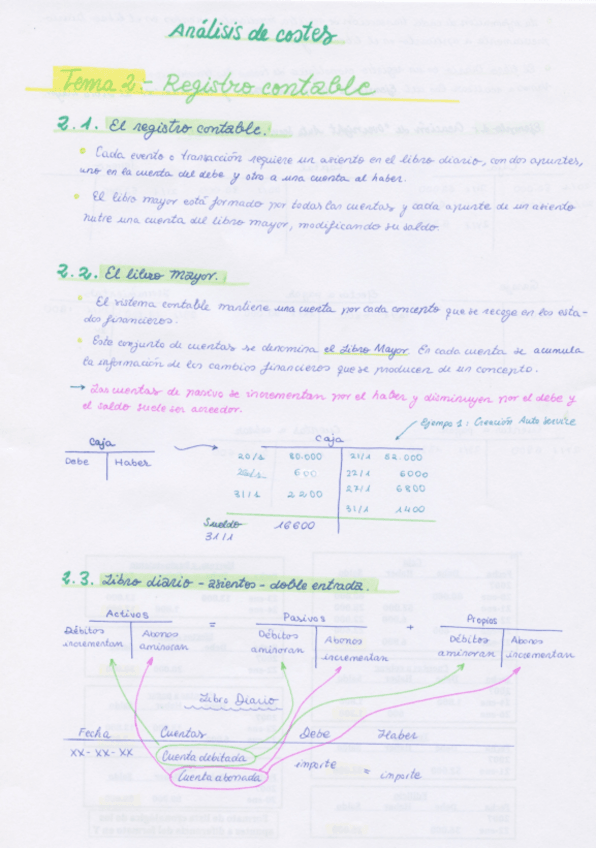 Análisis de costes
Tema 2.- Registro contable
2.1. El registro contable.
Cada evento o transacción requiere un asiento en el libro diario, con dos apuntes,
uno en la cuenta del debe y otro a una cuenta al haber.
El libro mayor está formado por todas las cuentas y cada apunte de un asiento
nutre una cuenta del libro mayor, modificando su saldo.
2.2. El libro Mayor.
El sistema contable mantiene una cuenta por cada concepto que se recoge en los esta-
dos financieros.
Este conjunto de cuentas se denomina el Libro Mayor. En cada cuenta se acumula
la información de los cambios financieros que se producen de un concepto.
→ Las cuentas de pasivo se incrementan por el haber y disminuyen por el debe y
el saldo suele ser acreedor.
Ejemplo 1: Creación Auto service
Caja
Debe Haber
Caja
20/1 80.000 21/1 62.000
600 22/1 6000
31/1 2200 27/1 6800
31/1 1400
16600
31/1
2.3. Libro diario - asientos - doble entrada.
Activos = Pasivos + Propios
Débitos incrementan
Abonos aminoran
Débitos aminoran
Abonos incrementan
Débitos aminoran
Abonos incrementan
Libro Diario
Fecha Cuentas Debe Haber
XX-XX-XX Cuenta debitada
Cuenta abonada
importe = importe